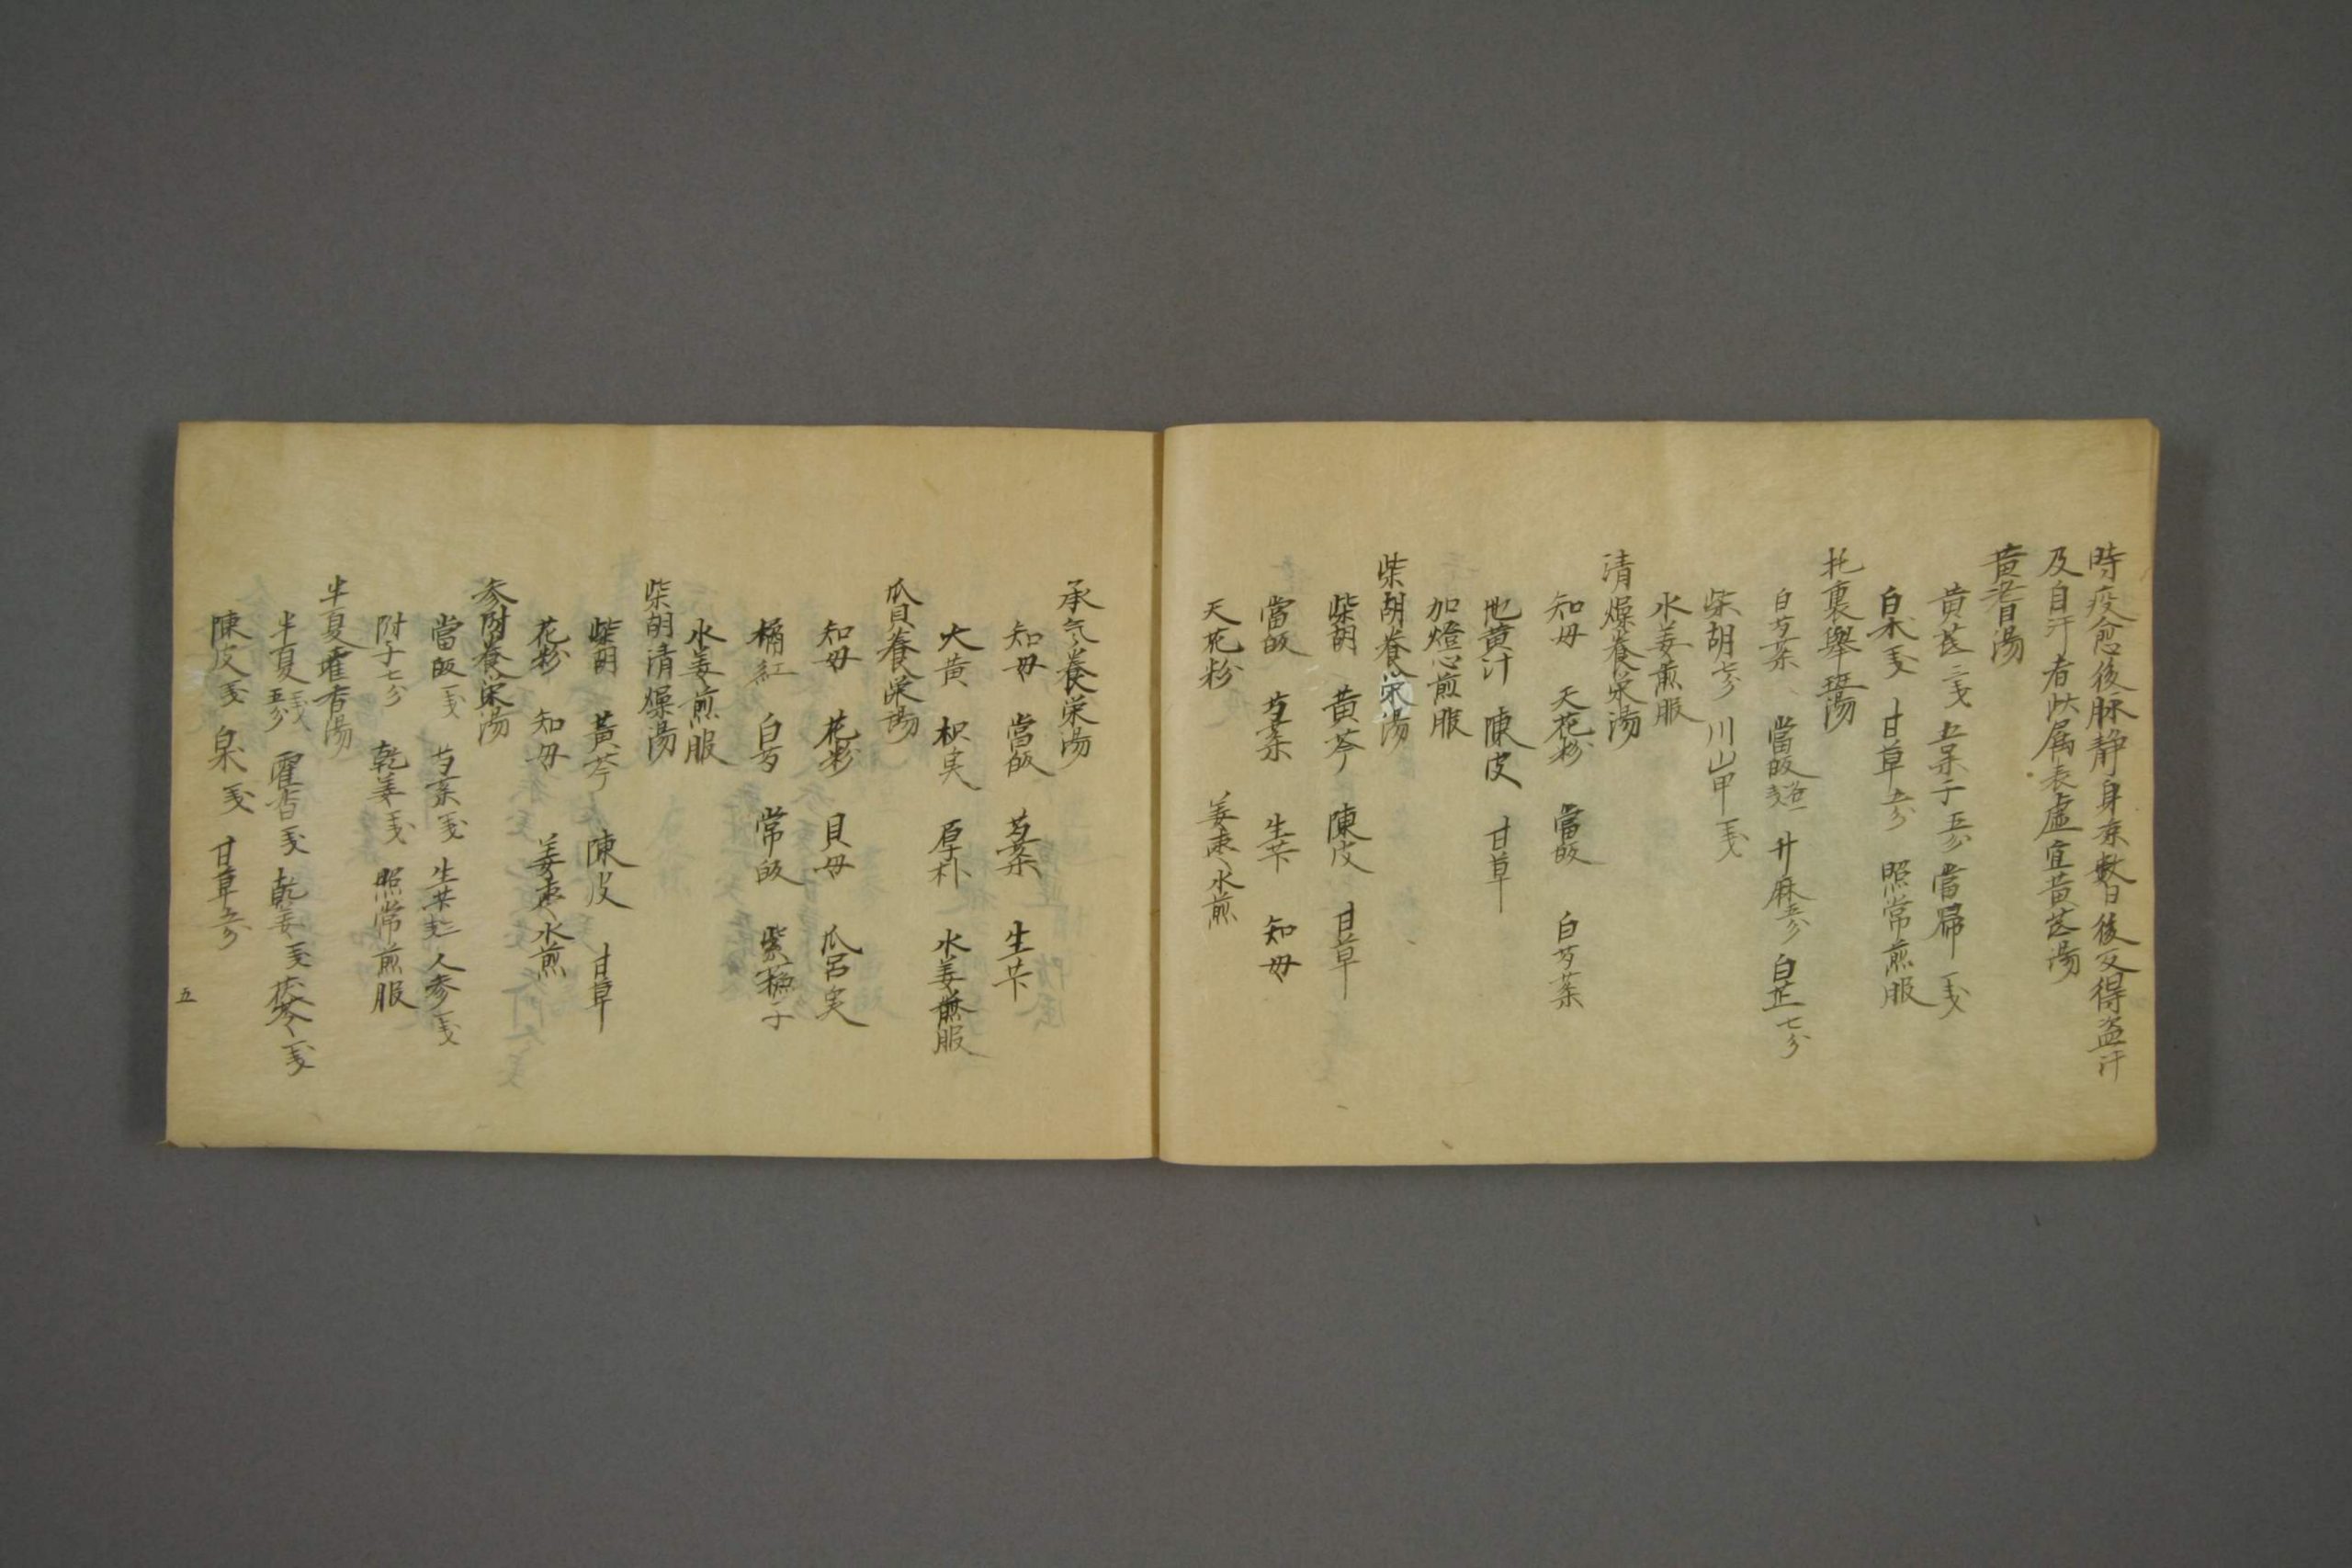 時疫愈後脉静身凉數日後反得盗汗
及自汗者此属表虚宜黄芪湯
黄芪湯
黄芪三戋 五味子五分 當歸一戋
白术一戋 甘草五分 照常煎服
托裏舉斑湯
白芍薬 當皈 升麻五分 白芷七分
柴胡七分 川山甲二戋
水姜煎服
清燥養荣湯
知母 天花粉 當皈 白芍薬
地黄汁 陳皮 甘草
加燈心煎服
柴胡養荣湯
柴胡 黄芩 陳皮 甘草
當皈 芍薬 生芐 知母
天花粉 姜枣水煎
承气養栄湯
知母 當皈 芍薬 生芐
大黄 枳实 厚朴 水姜煎服
瓜貝養栄湯
知母 花粉 貝母 瓜呂实
橘紅 白芍 當皈 紫蘓子
水姜煎服
柴胡清燥湯
柴胡 黄芩 陳皮 甘草
花粉 知母 姜枣水煎
参附養荣湯
當皈一戋 芍薬一戋 生芐三戋 人参一戋
附子七分 乾姜一戋 照常煎服
半夏霍香湯
半夏一戋五分 霍香一戋 乾姜一戋 茯苓一戋
陳皮一戋 白术一戋 甘草五分
五